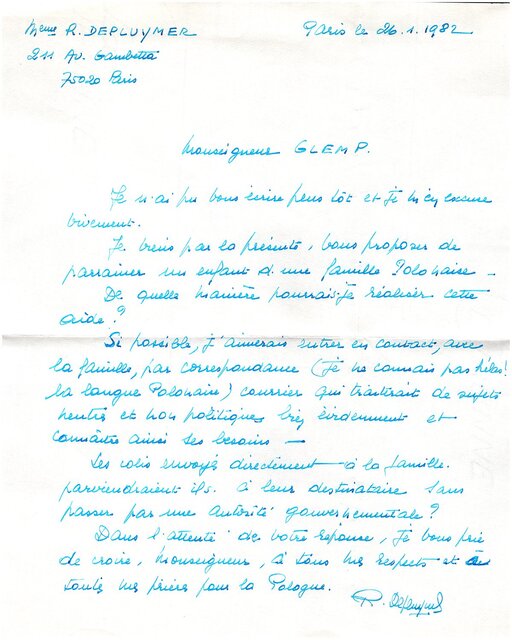 Meme R. DEPLUYMER
Paris le 26.1.1982
211 Av. Gambetta
75020 Paris
Monseigneur GLEMP.
Je n'ai pu vous écrire plus tôt et je m'en excuse
vivement.
Je viens par la présente, vous proposer de
parrainer un enfant d'une famille Polonaise -
De quelle manière pourrais-je réaliser cette
aide ?
Si possible, j'aimerais entrer en contact, avec
la famille, par correspondance (je ne connais pas hélas!
la langue Polonaise) courrier qui traiterait de sujets
neutres et non politiques bien évidemment et
connaître ainsi ses besoins -
Les colis envoyés directement à la famille
parviendraient ils à leur destinataire sans
passer par une autorité gouvernementale ?
Dans l'attente de votre réponse, je vous prie
de croire, Monseigneur, à tous mes respects et à
toutes mes prières pour la Pologne.
R. Depluymer